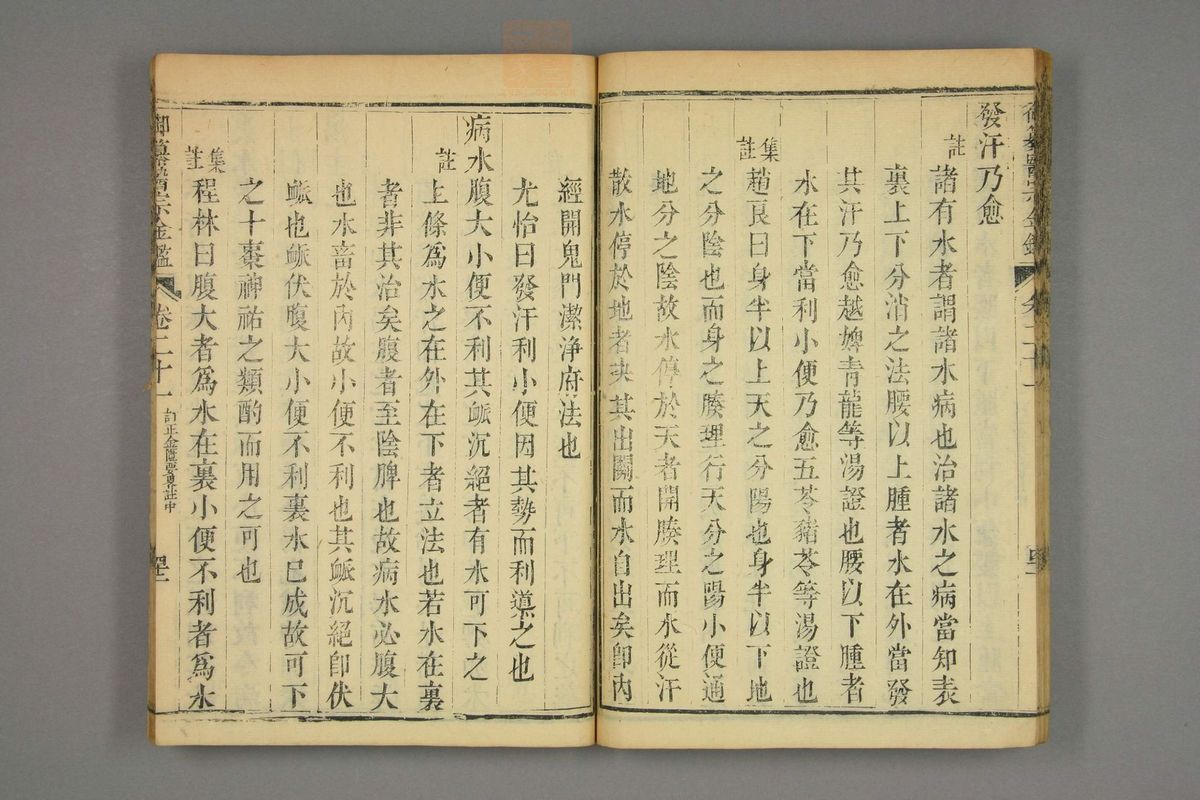 發汗乃愈
註
諸有水者謂諸水病也治諸水之病當知表
裏上下分消之法腰以上腫者水在外當發
其汗乃愈越婢青龍等湯證也腰以下腫者
水在下當利小便乃愈五苓豬苓等湯證也
集註
趙良曰身半以上天之分陽也身半以下地
之分陰也而身之腠理行天分之陽小便通
地分之陰故水停於天者開腠理而水從汗
散水停於地者決其出關而水自出矣卽內
經開鬼門潔淨府法也
尤怡曰發汗利小便因其勢而利導之也
病水腹大小便不利其脈沉絕者有水可下之
註
上條爲水之在外在下者立法也若水在裏
者非其治矣腹者至陰脾也故病水必腹大
也水畜於內故小便不利也其脈沉絕卽伏
脈也脈伏腹大小便不利裏水已成故可下
之十棗神祐之類酌而用之可也
集註
程林曰腹大者爲水在裏小便不利者爲水
御纂醫宗金鑑
卷二十一
訂正金匱要畧註中